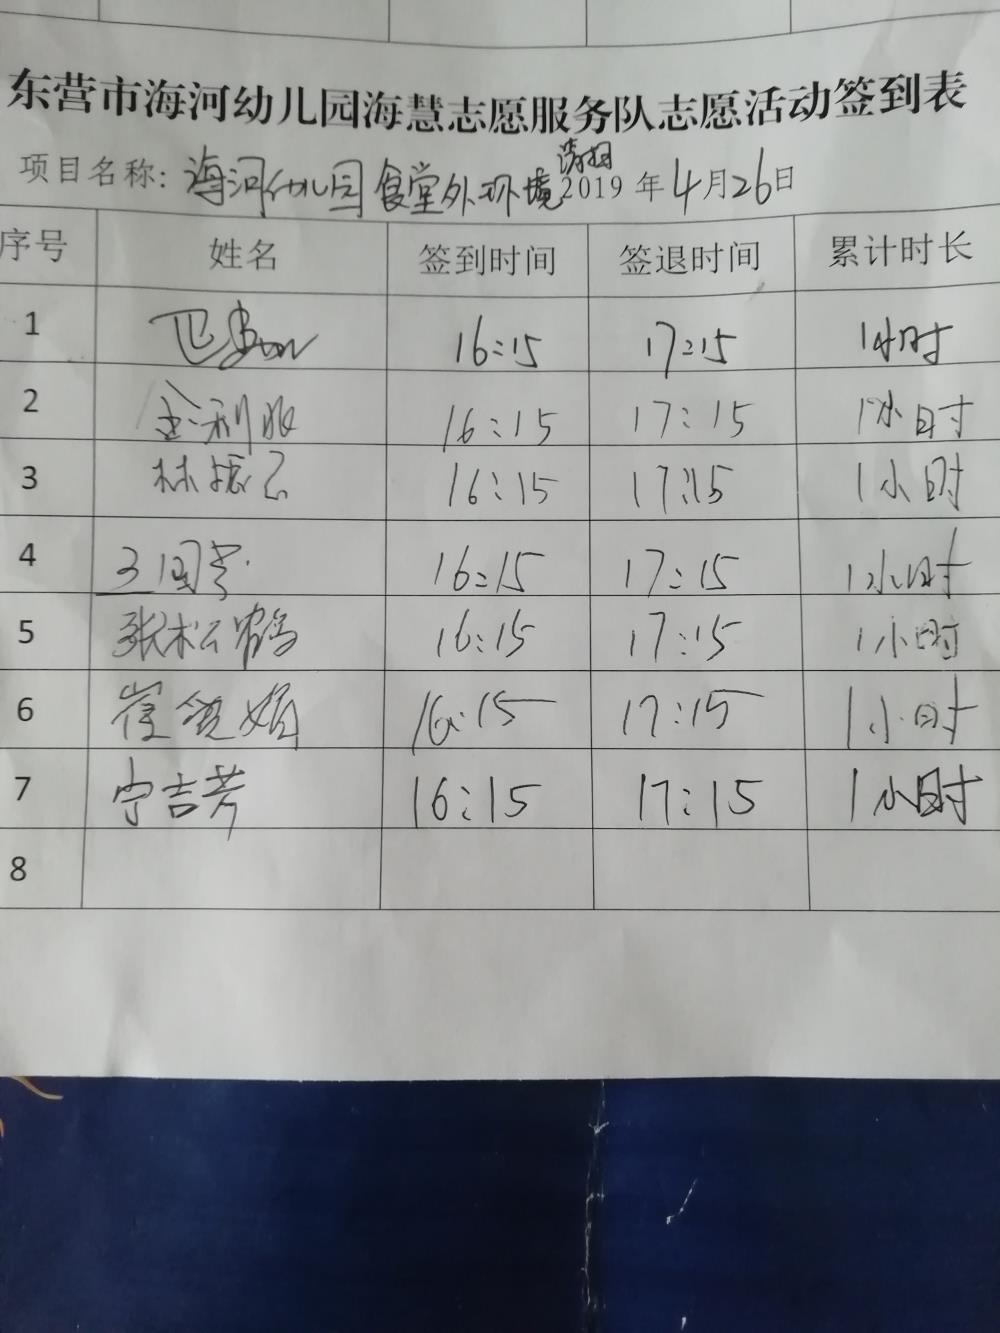 东营市海河幼儿园海慧志愿服务队志愿活动签到表
项目名称: 海河幼儿园食堂外环境清扫 2019 年 4月26日
序号 姓名 签到时间 签退时间 累计时长
1 16:15 17:15 1小时
2 16:15 17:15 1小时
3 林振 16:15 17:15 1小时
4 王国 16:15 17:15 1小时
5 张松鹤 16:15 17:15 1小时
6 崔 娟 16:15 17:15 1小时
7 宁吉芳 16:15 17:15 1小时
8